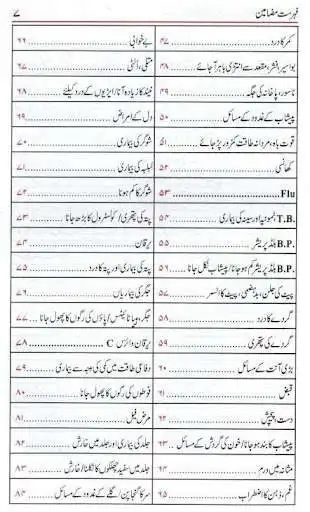 فہرست مضامین ۷
کمر کا درد ۴۷
بواسیر، فشر، مقعد سے انتڑی باہر آ جائے ۴۸
ناسور، پاخانہ کی جگہ ۴۹
پیشاب کے غدود کے مسائل ۵۰
قوت باہ، مردانہ طاقت کمزور پڑ جائے ۵۱
کھانسی ۵۲
Flu ۵۳
T.B. نمونیہ اور سینہ کی بیماری ۵۴
B.P. بلڈ پریشر ۵۵
B.P. بلڈ پریشر کم ہو جانا / پیشاب نکل جانا ۵۶
پیٹ کی جلن، بدہضمی، پیٹ کا السر ۵۷
گردے کا درد ۵۸
گردے کی پتھری ۵۹
بڑی آنت کے مسائل ۶۰
قبض ۶۱
دست، پیچش ۶۲
پیشاب کا بند ہو جانا / خون کی گردش کے مسائل ۶۳
مثانہ میں ورم ۶۴
غم، ذہن کا اضطراب ۶۵
بے خوابی ۶۶
متلی، الٹی ۶۷
نیند کا زیادہ آنا / ایڑیوں کے درد کیلئے ۶۸
دل کے امراض ۶۹
شوگر کی بیماری ۷۰
لبلبہ کی بیماری ۷۱
شوگر کا کم ہونا ۷۲
پتہ کی پتھری / کولسٹرول کا بڑھ جانا ۷۳
یرقان ۷۴
پتہ کی بیماری اور پتہ کا درد ۷۵
جگر کی بیماریاں ۷۶
جگر، ہیپاٹائیٹس / پاؤں کی رگوں کا پھول جانا ۷۷
یرقان وائرس C ۷۸
دفاعی طاقت میں کمی کی وجہ سے بیماری ۷۹
فوطوں کی رگوں کا پھول جانا ۸۰
مرض فیل ۸۱
جلد کی بیماری اور جلد میں خارش ۸۲
جلد میں سفید چھلکوں کا نکلنا / خارش ۸۳
سر کا گنجا پن / گلے کے غدود کے مسائل ۸۴